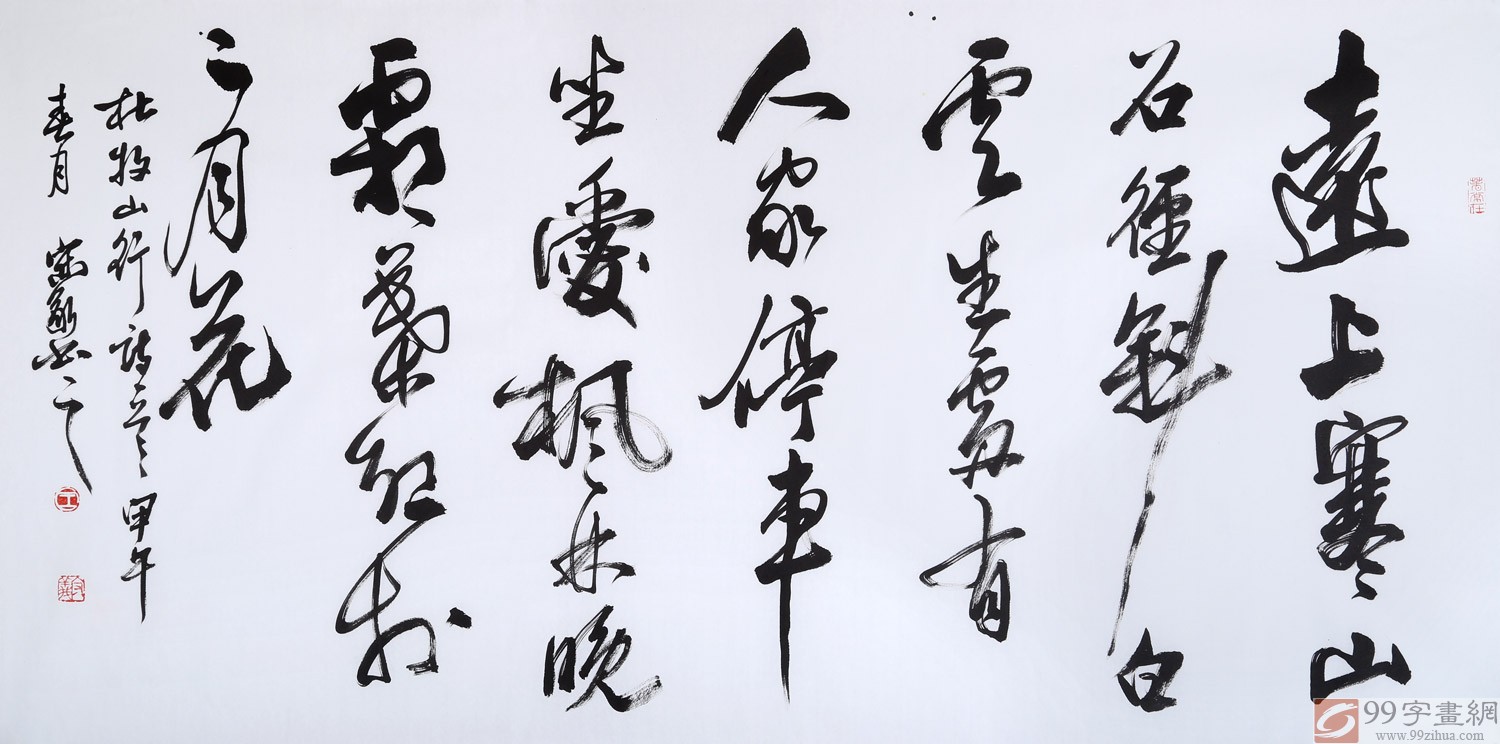 遠上寒山
石徑斜白
雲生處有
人家停車
坐愛楓林晚
霜葉紅於
二月花
杜牧山行詩一首 甲午
春月
99字畫網
www.99zihua.com